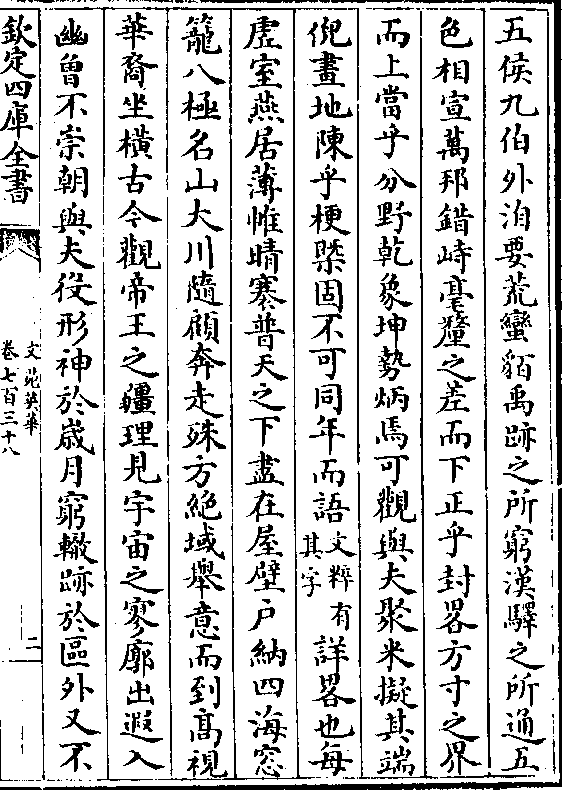 五侯九伯外洎要荒蠻貊禹跡之所窮漢驛之所通五
色相宣萬邦錯峙毫釐之差而下正乎封畧方寸之界
而上當乎分野乾象坤勢炳焉可觀與夫聚米擬其端
倪畫地陳乎梗槩固不可同年而語文粹有其字詳畧也每
虚室燕居薄帷晴褰普天之下盡在屋壁户納四海窓
籠八極名山大川隨顧奔走殊方絶域舉意而到高視
華裔坐横古今觀帝王之疆理見宇宙之寥廓出遐入
幽曾不崇朝與夫役形神於歳月窮轍跡於區外又不
欽定四庫全書
文苑英華
卷七百三十八
二